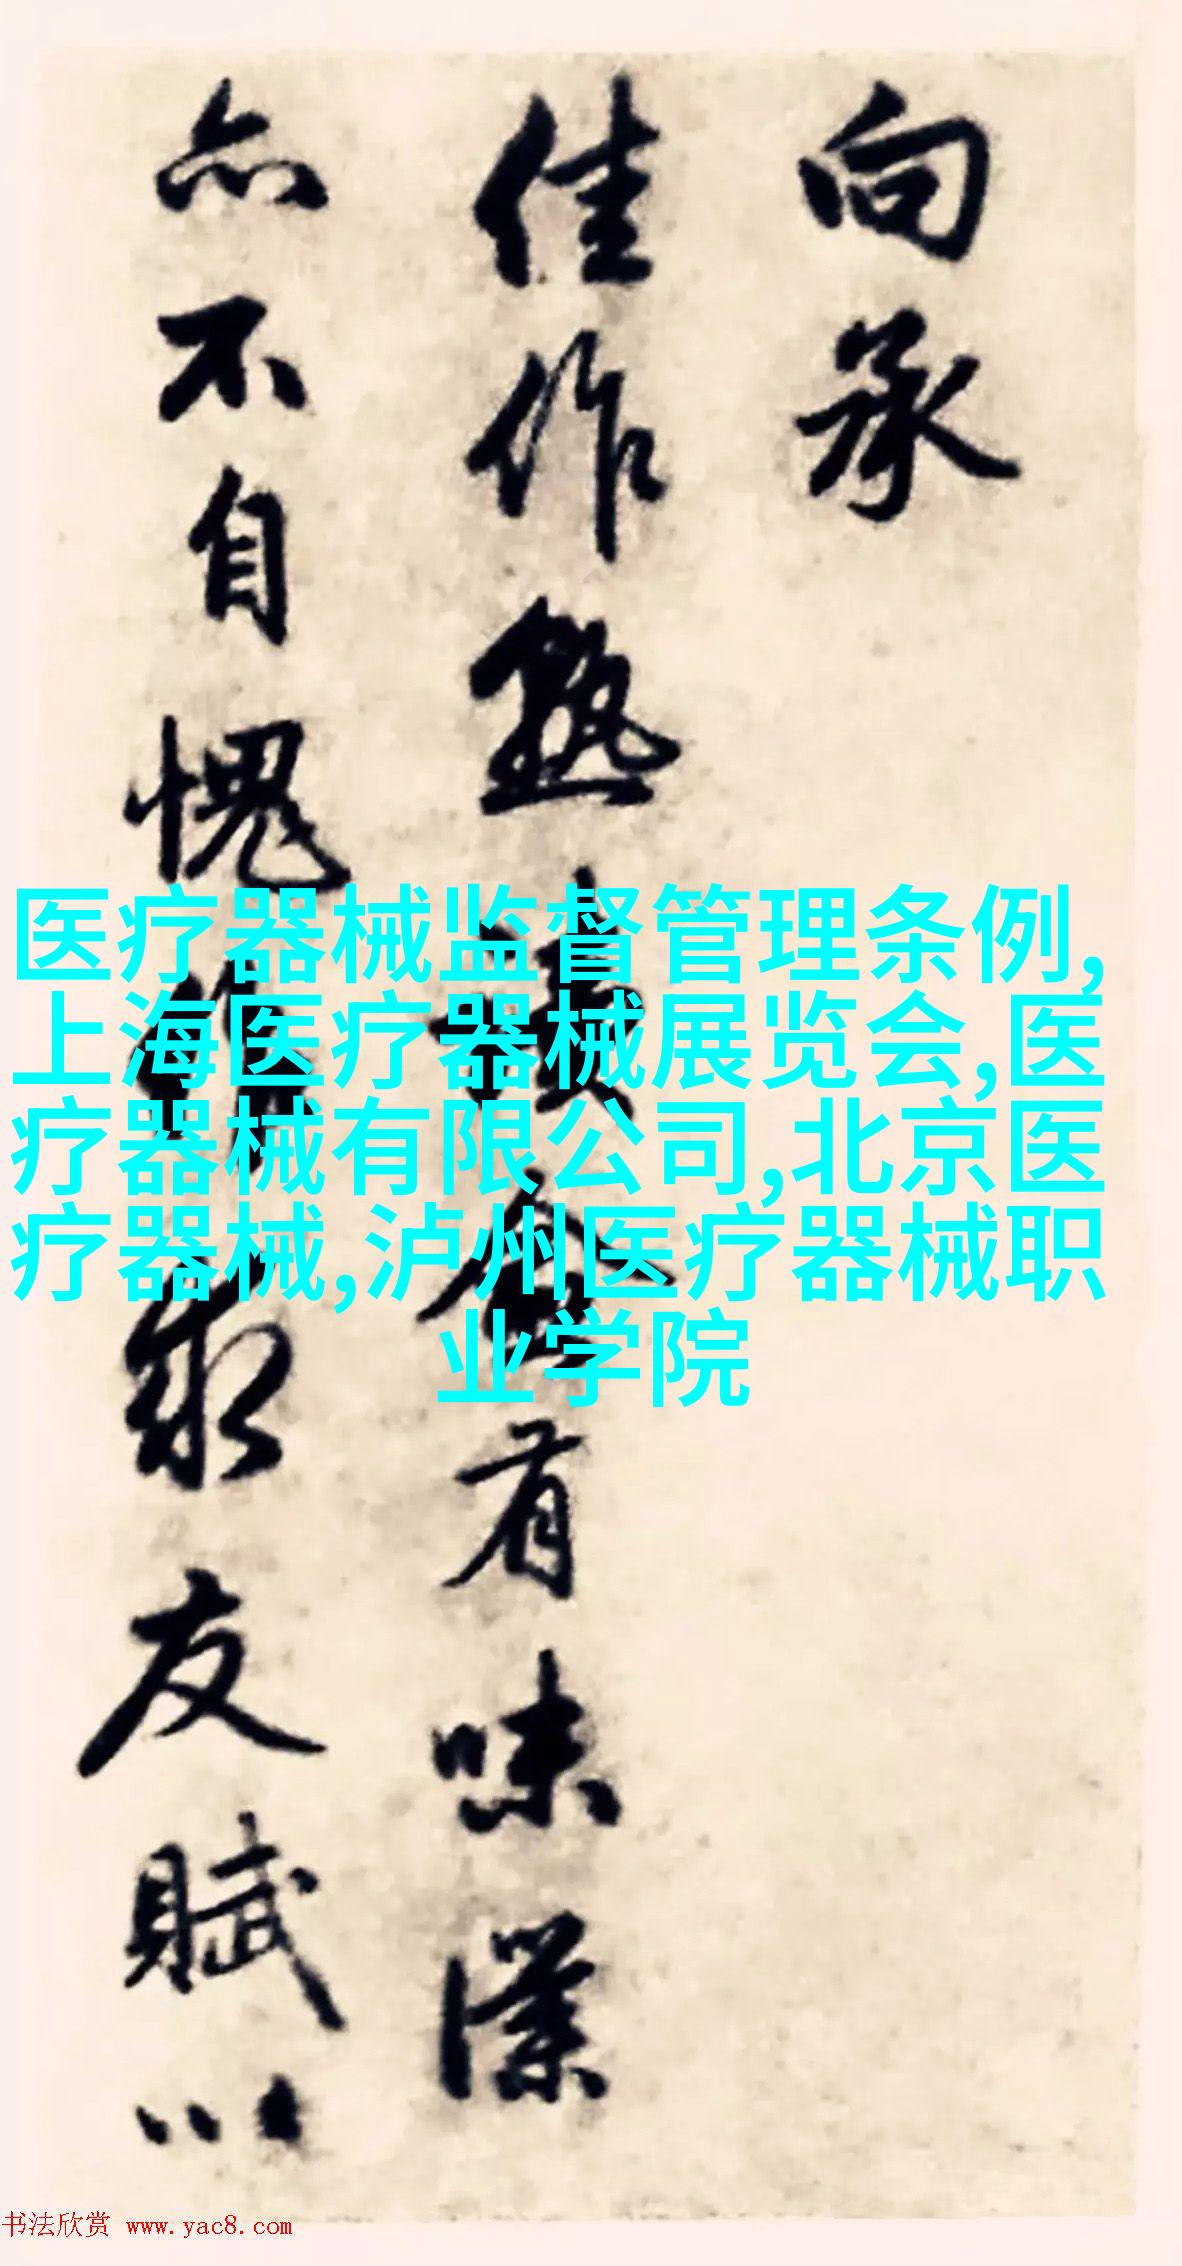 向承
佳作熟有味僕
亦不自愧作求友賦以
医疗器械监督管理条例,
上海医疗器械展览会,医
疗器械有限公司,北京医
疗器械,泸州医疗器械职
业学院
书法欣赏 www.yac8.com